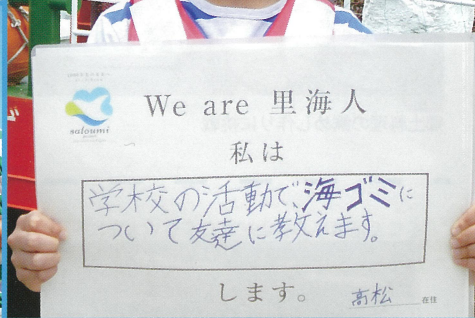 satoumi
We are 里海人
私は
学校の活動で、海ゴミに
ついて友達に教えます。
します。
高松 在住